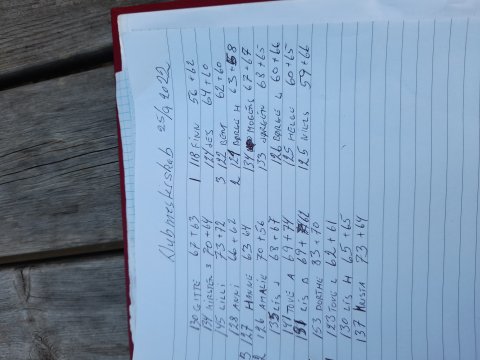 Klubmesterskab 25/9 2022
130 GITTE 67+63
134 KIRSTEN S 70+64
145 LILLI 73+72
128 ANNI 66+62
127 HANNE 63 64
126 AMALIE 70+56
135 LIS J 68+67
141 TOVE A 69+74
131 LIS B 69+62
153 DORTHE 83+70
123 TOVE L 62+61
130 LIS H 65+65
137 KRISTA 73+64
1 118 FINN 56+62
124 JES 64+60
3 122 BENT 62+60
2 121 BØRGE H 63+58
134 MOGENS 67+67
133 JØRGEN 68+65
126 BØRGE L 60+66
125 HELGE 60+65
125 NIELS 59+66